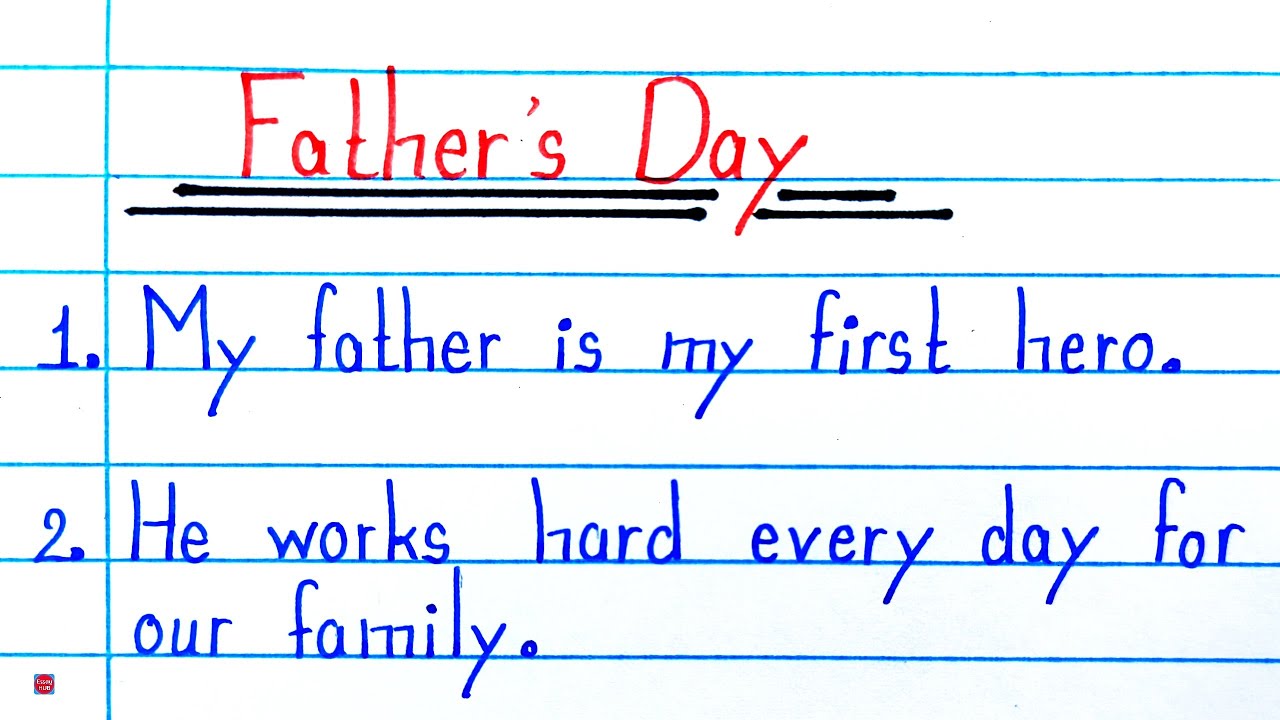 Father's Day
1. My father is my first hero.
2. He works hard every day for
our family.
Essay
HUB